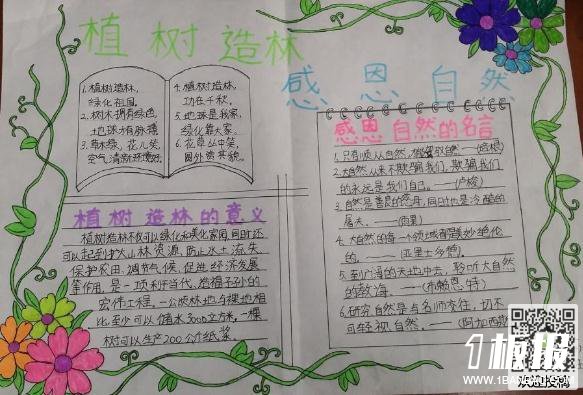 植树造林
感恩自然
1.植树造林,
绿化祖国。
2.树木拥有绿色,
地球才有脉搏
3.草木绿,花儿笑,
空气清新环境好
4.植树造林,
功在千秋,
5.地球是我家,
绿化靠大家。
6.花草丛中笑,
园外赏其貌。
植树造林的意义
植树造林不仅可以绿化和美化家园,同时还
可以起到扩大山林资源、防止水土流失、
保护农田、调节气候、促进经济发展
等作用,是一项利于当代、造福子孙的
宏伟工程。一公顷林地与裸地相
比至少可以储水3000立方米,一棵
树可以生产200公斤纸浆。
感恩自然的名言
1.只有顺从自然,才能驾驭自然——(培根)
2.大自然从来不欺骗我们,欺骗我们
的永远是我们自己。——(卢梭)
3.自然是善良的慈母,同时也是冷酷的
屠夫。——(雨果)
4.大自然的每一个领域都是美妙绝伦
的。——(亚里士多德)
5.到广阔的天地中去,聆听大自然
的教诲。——(布赖恩特)
6.研究自然是与名师交往,切不
可轻视自然。——(阿加西斯)
1板报
WWW.1BANBAO.COM
欢迎投稿